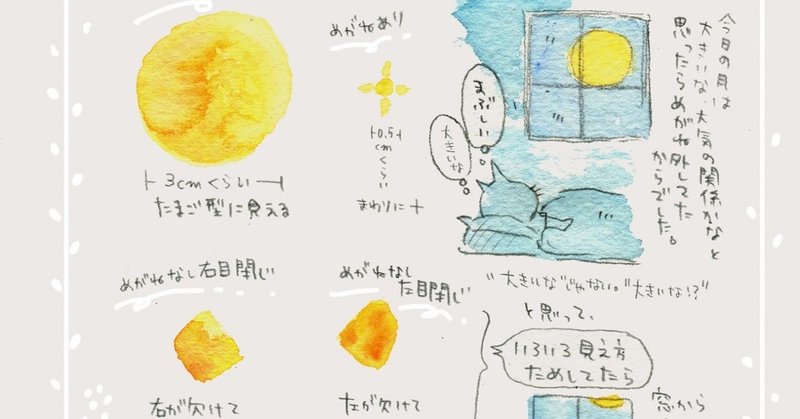 今日の月は
大きいな、大気の関係かなと
思ったらめがね外してた
からでした。
まぶしい。。
大きいな
めがねあり
0.5
cmくらい
まわりに十
3cmくらい
たまご型に見える
"大きいな"じゃない。"大きいな!?"
と思って、
いろいろ見え方
ためしてたら
窓から
めがねなし右目閉じ
右が欠けて
めがねなし
左目閉じ
左が欠けて